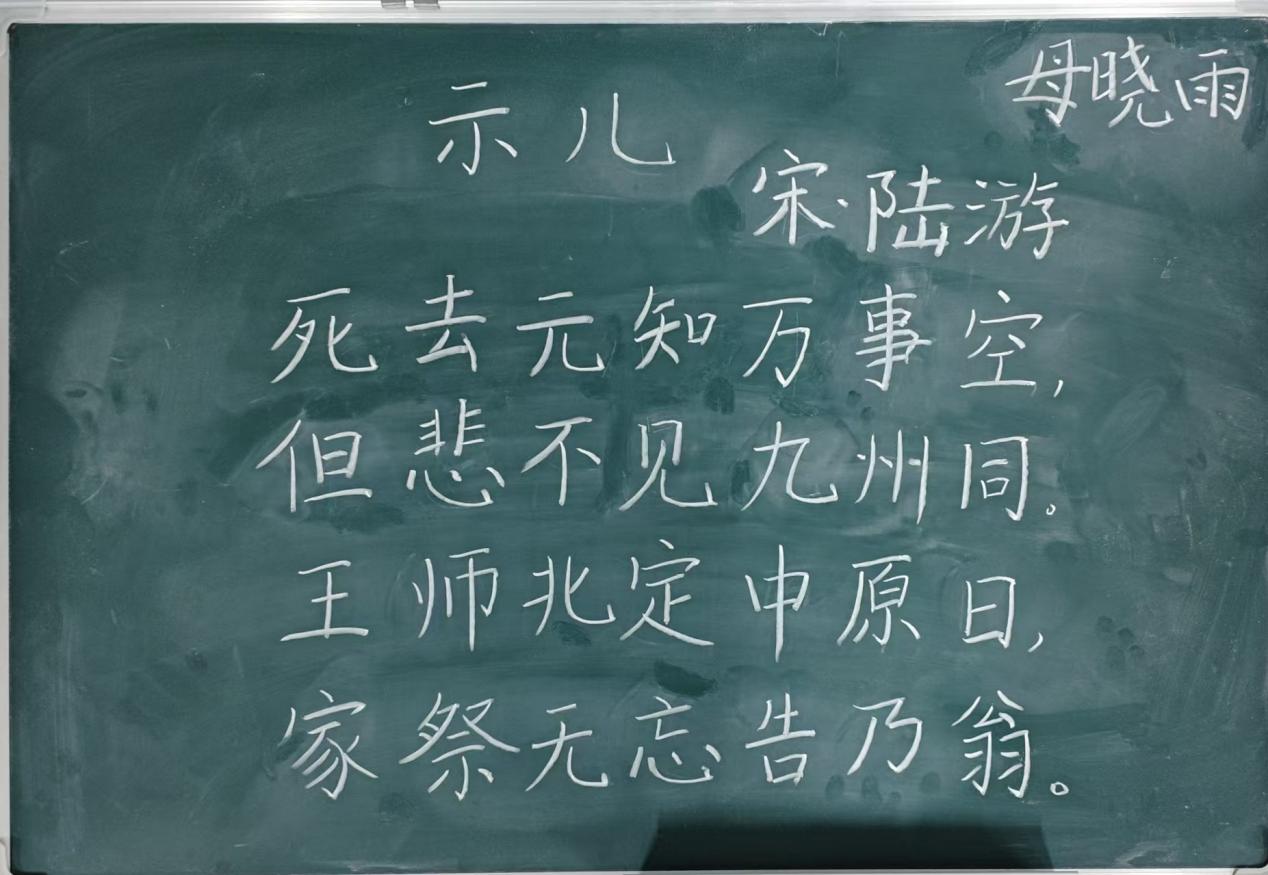 母晓雨
示儿
宋·陆游
死去元知万事空,
但悲不见九州同。
王师北定申原日,
家祭无忘告乃翁。